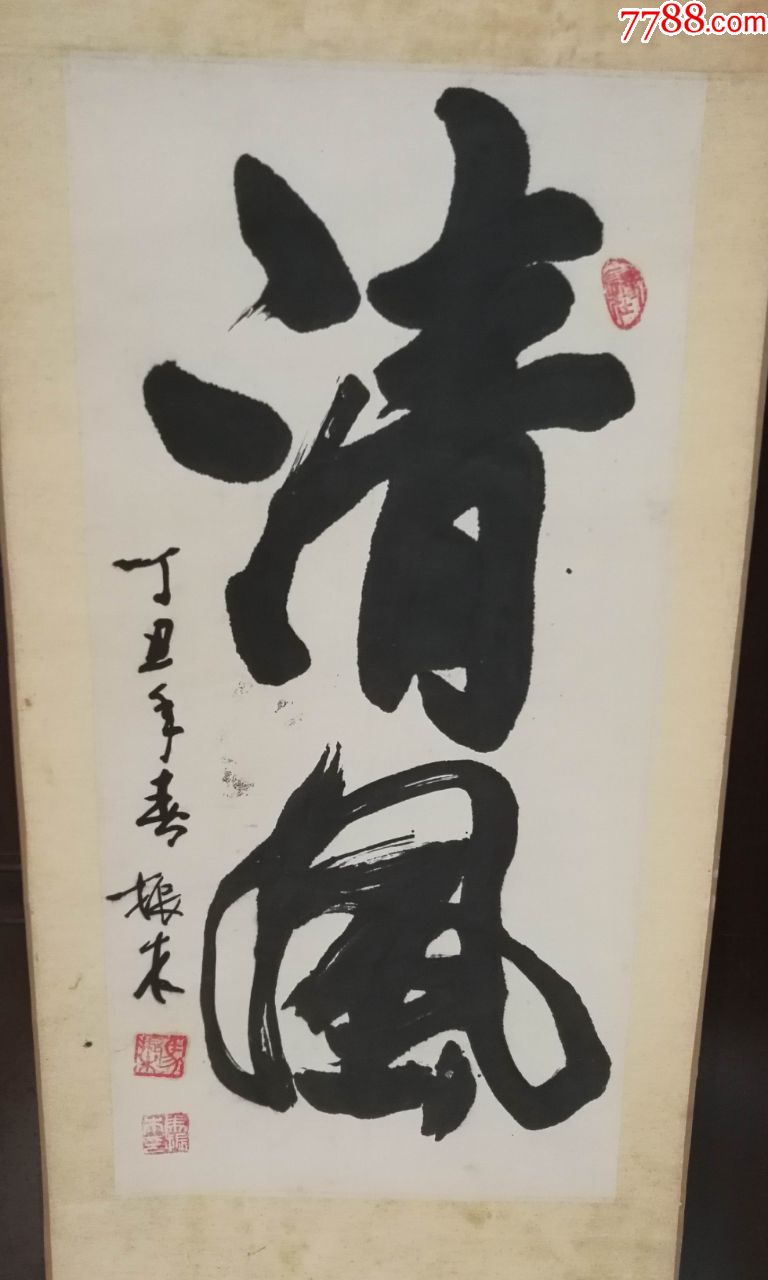 7788.com
清風
丁丑年春 振来